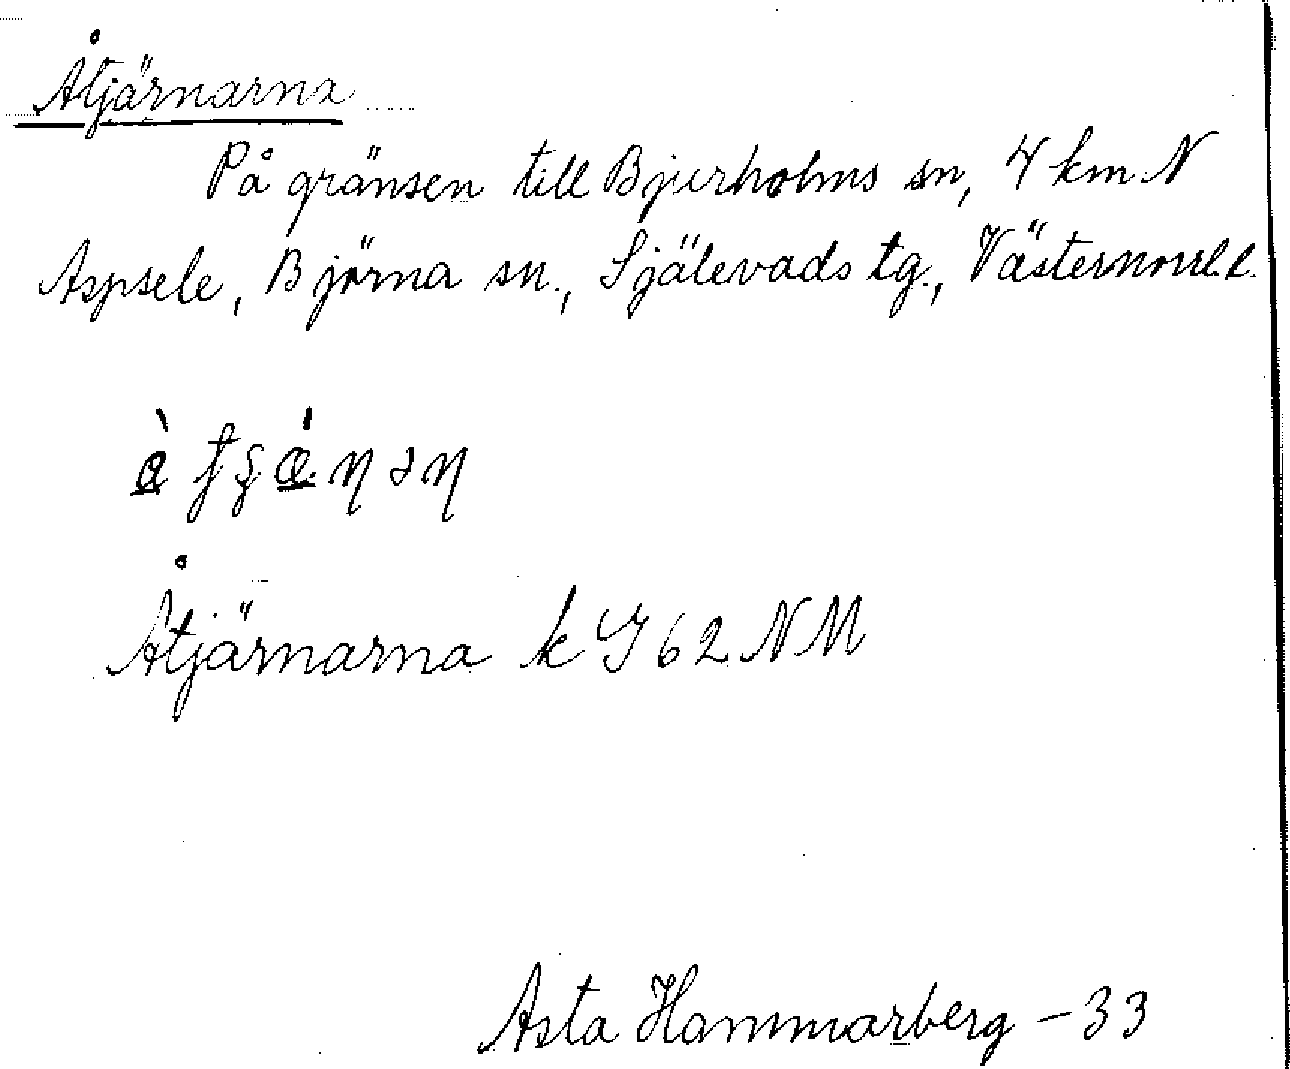 Åtjärnarna
På gränsen till Bjurholms sn, 4 km N
Aspsele, Björna sn., Själevads tg., Västernorrl. l.
Åtjärnarna k J 62 NM
Asta Hammarberg - 33